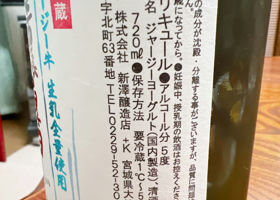 の成分が沈殿・分離する事がございますが、品質に問題
蔵になってから。●妊娠中、授乳期の飲酒はお控えくださ
リキュール●アルコール分 5度
名 ジャージーヨーグルト(国内製造)、清酒
720ml●保存方法 要冷蔵1℃~5
株式会社 新澤醸造店 +K 宮城県大
字北町63番地 TEL 0229-52-30
蔵
ージー牛
生乳全量使用